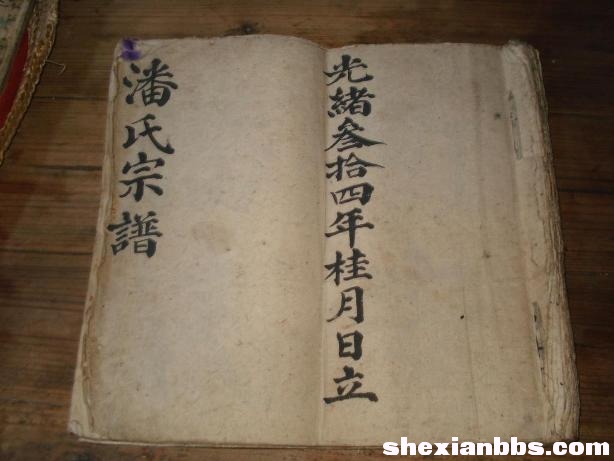 光緒叁拾四年桂月日立
潘氏宗譜
shexianbbs.com